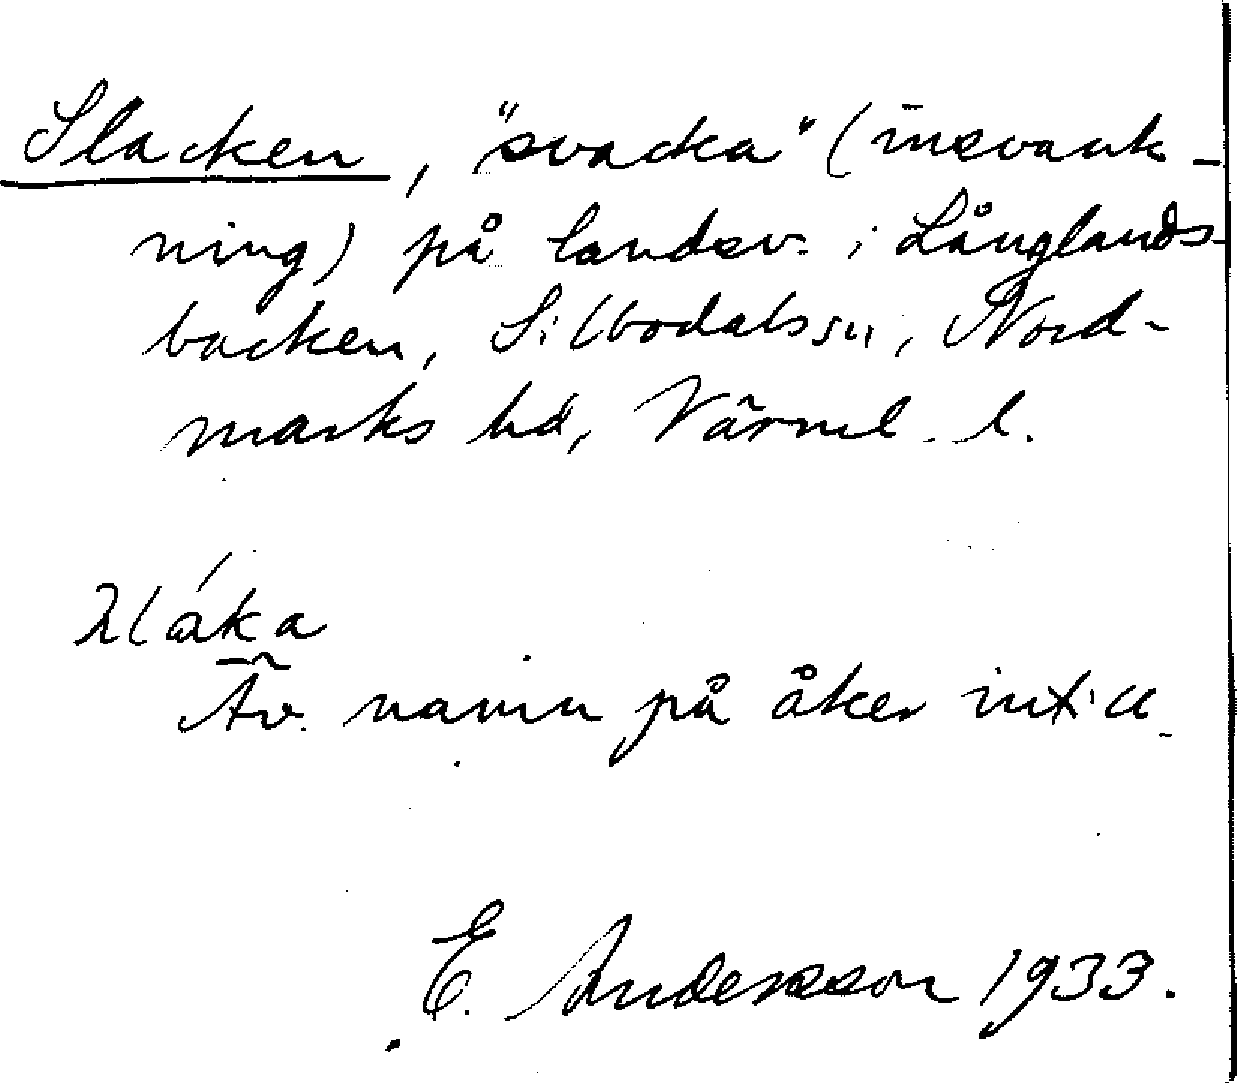 Slacken, "svacka" (insvank-
ning) på landsv. i Långlands-
backen, Silbodals sn, Nord-
marks hd, Värml. l.
áka
Äv. namn på åker intill.
E. Andersson 1933.